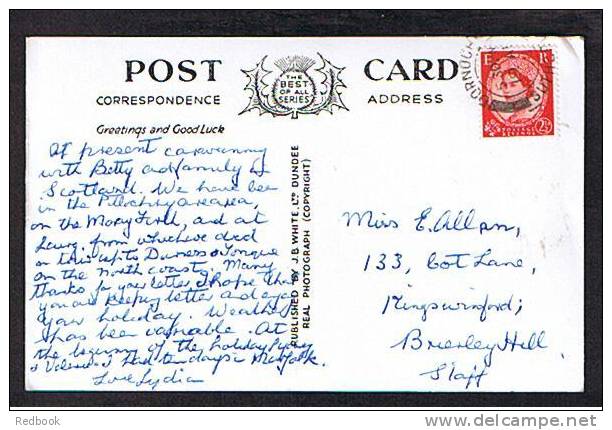 POST CARD
CORRESPONDENCE ADDRESS
THE
BEST
OF ALL
SERIES
Greetings and Good Luck
At present caravanning
with Betty and family in
Scotland. We have been
in the Pitlochry area,
on the Moray Firth, and at
Lairg, from which we did
on this up to Durness & Tongue
on the North coast. Many
thanks for your letter. I hope that
you are keeping better and
your holiday. Weather
has been variable. At
the beginning of the holiday
& Valerie & I had ten days in Norfolk.
Love Lydia
PUBLISHED BY J.B. WHITE, LTD DUNDEE
REAL PHOTOGRAPH (COPYRIGHT)
DORNOCH
E R
POSTAGE
REVENUE
2½
Miss E. Allan,
133, Cot Lane,
Kingswinford;
Brierley Hill
Staff
Redbook
www.delcampe.net